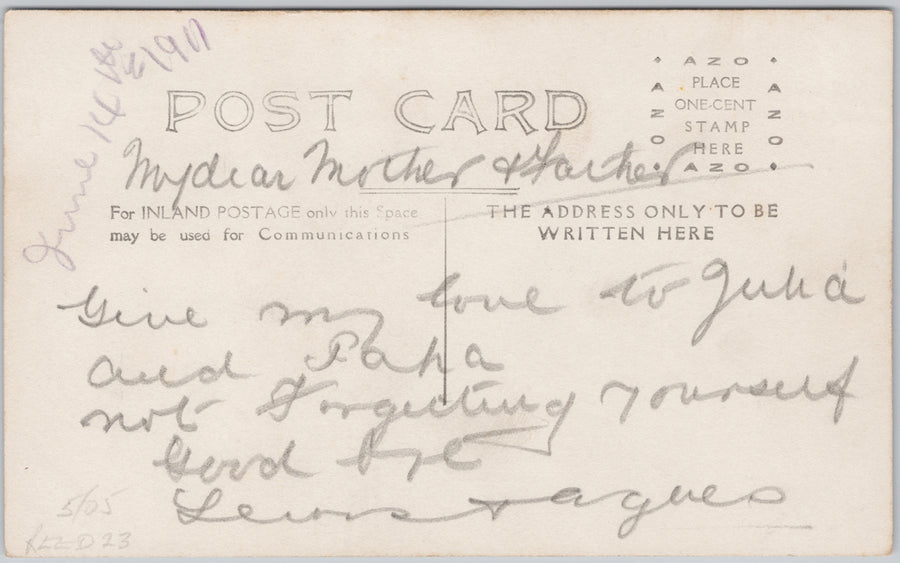 June 14th 1911
POST CARD
AZO
AZO
AZO
AZO
PLACE
ONE-CENT
STAMP
HERE
My dear Mother & Father
For INLAND POSTAGE only this Space
may be used for Communications
THE ADDRESS ONLY TO BE
WRITTEN HERE
Give my love to Julia
and Papa
not Forgetting yourself
Good bye
Lewis + agnes
5/05
D23